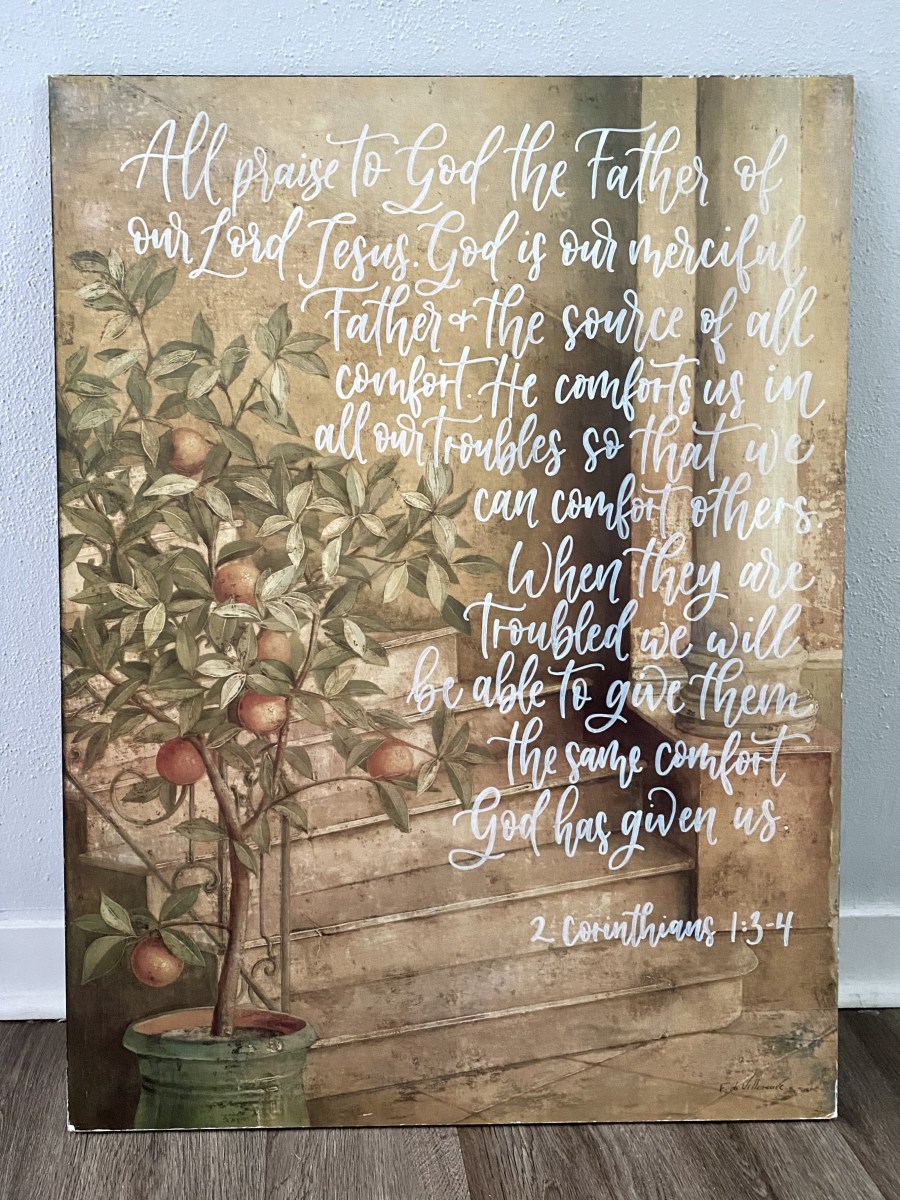 All praise to God the Father of
our Lord Jesus. God is our merciful
Father & the source of all
comfort. He comforts us in
all our troubles so that we
can comfort others.
When they are
troubled we will
be able to give them
the same comfort
God has given us
2 Corinthians 1:3-4